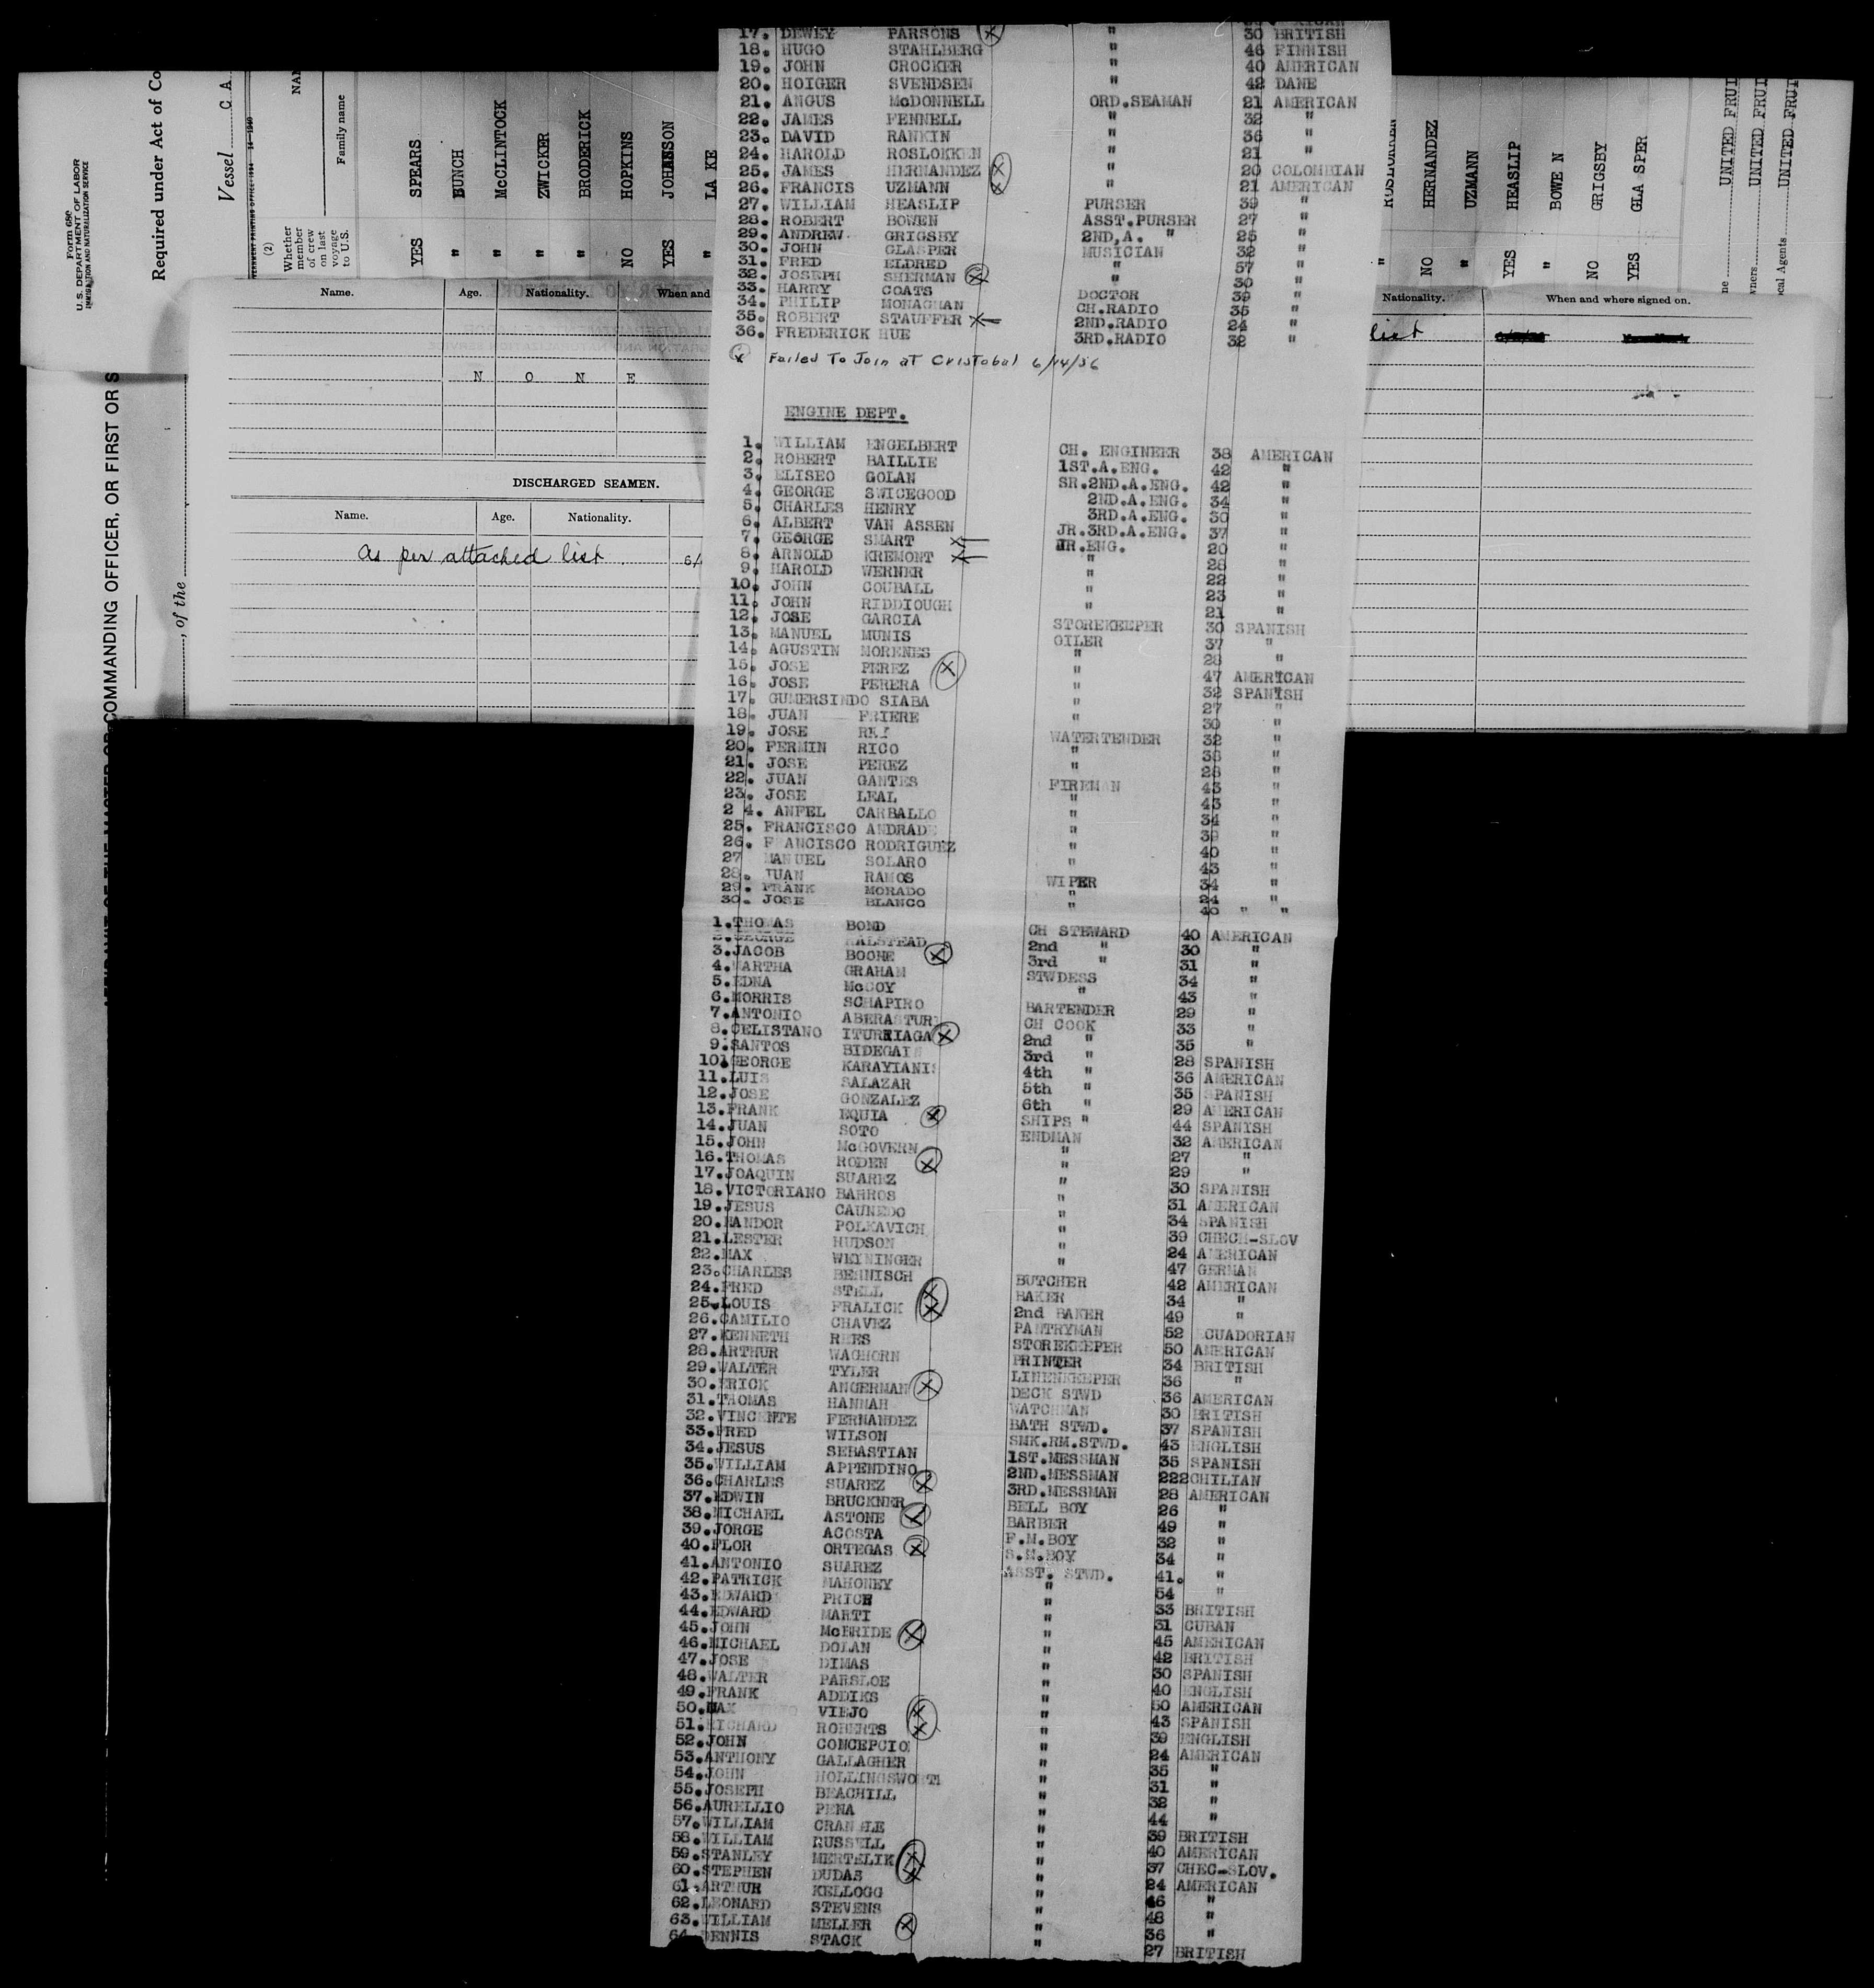 Form 680
U. S. DEPARTMENT OF LABOR
IMMIGRATION AND NATURALIZATION SERVICE
Required under Act of Co
Vessel C A
(2)
Whether member of crew on last voyage to U.S.
NA
Family name
YES SPEARS
" BUNCH
" McCLINTOCK
" ZWICKER
" BRODERICK
NO HOPKINS
YES JOHANSSON
" LA KE
COMMANDING OFFICER, OR FIRST OR S
, of the
Name. Age. Nationality. When and
N O N E
DISCHARGED SEAMEN.
Name. Age. Nationality.
as per attached list 6/
17. DEWEY PARSONS X " 30 BRITISH
18. HUGO STAHLBERG " 46 FINNISH
19. JOHN CROCKER " 40 AMERICAN
20. HOIGER SVENDSEN " 42 DANE
21. ANGUS McDONNELL ORD.SEAMAN 21 AMERICAN
22. JAMES FENNELL " 32 "
23. DAVID RANKIN " 36 "
24. HAROLD ROSLOKKEN " 21 "
25. JAMES HERNANDEZ X " 20 COLOMBIAN
26. FRANCIS UZMANN X " 21 AMERICAN
27. WILLIAM HEASLIP PURSER 39 "
28. ROBERT BOWEN ASST.PURSER 27 "
29. ANDREW GRIGSBY 2ND.A. " 25 "
30. JOHN GLASPER MUSICIAN 32 "
31. FRED ELDRED " 57 "
32. JOSEPH SHERMAN X " 30 "
33. HARRY COATS DOCTOR 39 "
34. PHILIP MONAGHAN CH.RADIO 35 "
35. ROBERT STAUFFER X 2ND.RADIO 24 "
36. FREDERICK HUE 3RD.RADIO 32 "
X Failed To Join at Cristobal 6/14/36
ENGINE DEPT.
1. WILLIAM ENGELBERT CH. ENGINEER 38 AMERICAN
2. ROBERT BAILLIE 1ST.A.ENG. 42 "
3. ELISEO GOLAN SR.2ND.A.ENG. 42 "
4. GEORGE SWICEGOOD 2ND.A.ENG. 34 "
5. CHARLES HENRY 3RD.A.ENG. 30 "
6. ALBERT VAN ASSEN JR.3RD.A.ENG. 37 "
7. GEORGE SMART X JR.ENG. 20 "
8. ARNOLD KREMONT X " 28 "
9. HAROLD WERNER " 22 "
10. JOHN COUBALL " 23 "
11. JOHN RIDDIOUGH " 21 "
12. JOSE GARCIA STOREKEEPER 30 SPANISH
13. MANUEL MUNIS OILER 37 "
14. AGUSTIN MORENES " 28 "
15. JOSE PEREZ X " 47 AMERICAN
16. JOSE PERERA " 32 SPANISH
17. GUMERSINDO SIABA " 27 "
18. JUAN FRIERE " 30 "
19. JOSE REY WATERTENDER 32 "
20. FERMIN RICO " 38 "
21. JOSE PEREZ " 28 "
22. JUAN GANTES FIREMAN 43 "
23. JOSE LEAL " 43 "
2 4. ANFEL CARBALLO " 34 "
25. FRANCISCO ANDRADE " 39 "
26. F ANCISCO RODRIGUEZ " 40 "
27 MANUEL SOLARO " 43 "
28. JUAN RAMOS WIPER 34 "
29. FRANK MORADO " 24 "
30. JOSE BLANCO " 40 " "
1. THOMAS BOND CH STEWARD 40 AMERICAN
2. GEORGE HALSTEAD 2nd " 30 "
3. JACOB BOONE X 3rd " 31 "
4. MARTHA GRAHAM STWDESS 34 "
5. EDNA McCOY " 43 "
6. MORRIS SCHAPIRO BARTENDER 29 "
7. ANTONIO ABERASTURI CH COOK 33 "
8. CELISTANO ITURRIAGA X 2nd " 35 "
9. SANTOS BIDEGAI 3rd " 28 SPANISH
10. GEORGE KARAYIANIS 4th " 36 AMERICAN
11. LUIS SALAZAR 5th " 35 SPANISH
12. JOSE GONZALEZ 6th " 29 AMERICAN
13. FRANK EQUIA X SHIPS " 44 SPANISH
14. JUAN SOTO ENDMAN 32 AMERICAN
15. JOHN McGOVERN " 27 "
16. THOMAS RODEN X " 29 "
17. JOAQUIN SUAREZ " 30 SPANISH
18. VICTORIANO BARROS " 31 AMERICAN
19. JESUS CAUNEDO " 34 SPANISH
20. NANDOR POLKAVICH " 39 CHECH-SLOV
21. LESTER HUDSON " 24 AMERICAN
22. MAX WEININGER " 47 GERMAN
23. CHARLES BEHNISCH BUTCHER 42 AMERICAN
24. FRED STELL X BAKER 34 "
25. LOUIS FRALICK X 2nd BAKER 49 "
26. CAMILIO CHAVEZ PANTRYMAN 52 ECUADORIAN
27. KENNETH REES STOREKEEPER 50 AMERICAN
28. ARTHUR WAGHORN PRINTER 34 BRITISH
29. WALTER TYLER LINENKEEPER 36 "
30. ERICK ANGERMAN X DECK STWD 36 AMERICAN
31. THOMAS HANNAH WATCHMAN 30 BRITISH
32. VINCENTE FERNANDEZ BATH STWD. 37 SPANISH
33. FRED WILSON SMK.RM.STWD. 43 ENGLISH
34. JESUS SEBASTIAN 1ST.MESSMAN 35 SPANISH
35. WILLIAM APPENDINO 2ND.MESSMAN 222CHILIAN
36. CHARLES SUAREZ X 3RD.MESSMAN 28 AMERICAN
37. EDWIN BRUCKNER BELL BOY 26 "
38. MICHAEL ASTONE X BARBER 49 "
39. JORGE ACOSTA F.M.BOY 32 "
40. FLOR ORTEGAS X S.M.BOY 34 "
41. ANTONIO SUAREZ ASST. STWD. 41. "
42. PATRICK MAHONEY " 54 "
43. EDWARD PRICE " 33 BRITISH
44. EDWARD MARTI " 31 CUBAN
45. JOHN McBRIDE X " 45 AMERICAN
46. MICHAEL DOLAN " 42 BRITISH
47. JOSE DIMAS " 30 SPANISH
48. WALTER PARSLOE " 40 ENGLISH
49. FRANK ADDIKS " 50 AMERICAN
50. MAX VIEJO X " 43 SPANISH
51. RICHARD ROBERTS X " 39 ENGLISH
52. JOHN CONCEPCIO " 24 AMERICAN
53. ANTHONY GALLAGHER " 35 "
54. JOHN HOLLINGSWORTH " 31 "
55. JOSEPH BEACHILL " 32 "
56. AURELLIO PENA " 44 "
57. WILLIAM CRANDLE " 39 BRITISH
58. WILLIAM RUSSELL " 40 AMERICAN
59. STANLEY MERTELIK X " 37 CHEC-SLOV.
60. STEPHEN DUDAS X " 24 AMERICAN
61. ARTHUR KELLOGG " 46 "
62. LEONARD STEVENS " 48 "
63. WILLIAM MELLER X " 36 "
64 DENNIS STACK " 27 BRITISH
" ROSLOKKEN
NO HERNANDEZ
" UZMANN
YES HEASLIP
" BOWE N
NO GRIGSBY
YES GLA SPER
UNITED FRUI
wners UNITED FRUI
cal Agents UNITED FRUIT
Nationality. When and where signed on.
list